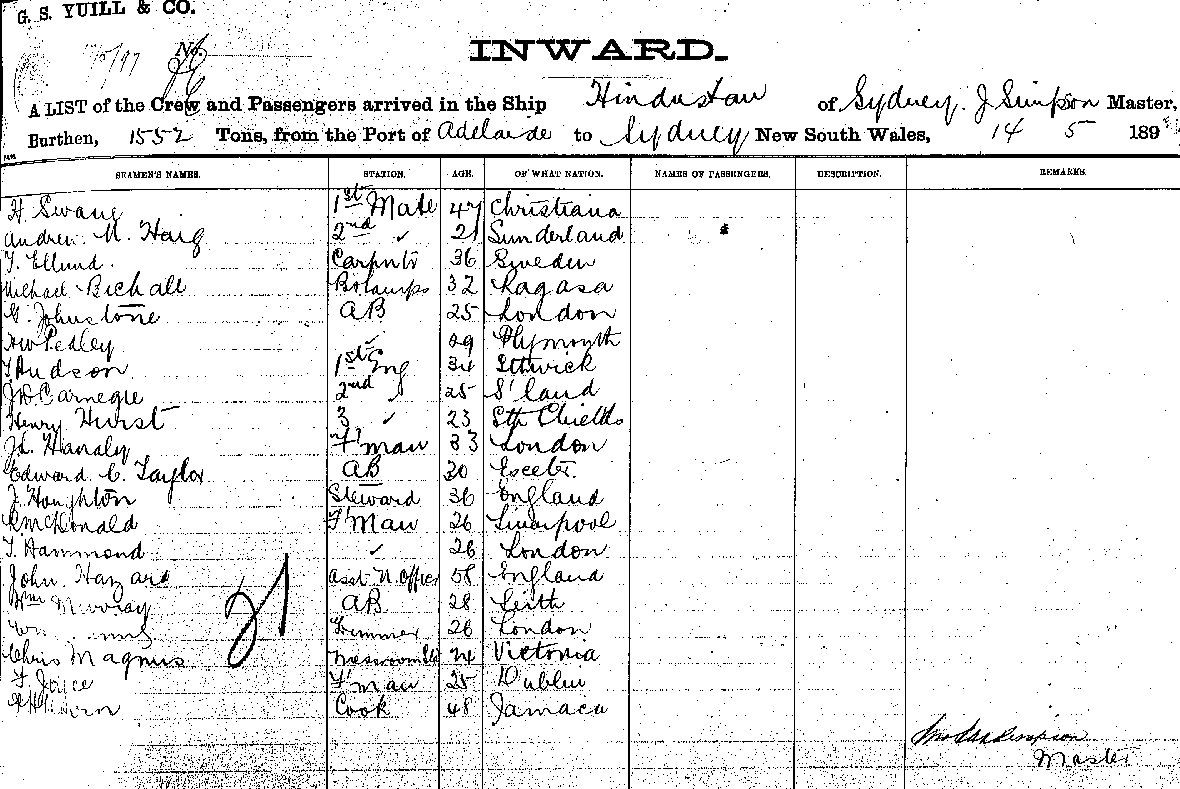 G. S. YUILL & CO.
No.
INWARD.
A LIST of the Crew and Passengers arrived in the Ship Hindustan of Sydney. J Simpson Master,
Burthen, 1552 Tons, from the Port of Adelaide to Sydney New South Wales, 14 5 189
SEAMEN'S NAMES. STATION. AGE. OF WHAT NATION. NAMES OF PASSENGERS. DESCRIPTION. REMARKS.
H Swang 1st Mate 47 Christiana
Andrew M. Haig 2nd " 21 Sunderland
T. Ellund. Carpntr 36 Sweden
Michael Bichall 32 Ragasa
G. Johnstone AB 25 London
HW Pedley " 29 Plymouth
T Hudson 1st Eng 34
JD Carnegie 2nd " 25 S'land
Henry Hurst 3 " 23 Sth Chields
Hanaly F'man 33 London
Edward C. Taylor AB 30 Exceter
J. Houghton Steward 36 England
R McDonald F'Man 26 Liverpool
T. Hammond " 26 London
John Hazard Asst N. Officer 58 England
Wm Murray AB 28 Leith
Trimmer 26 London
Chris Magnus Messroom 24 Victoria
T. Joyce F'man 25 Dublin
Cook 48 Jamaca
21
Simpson
Master